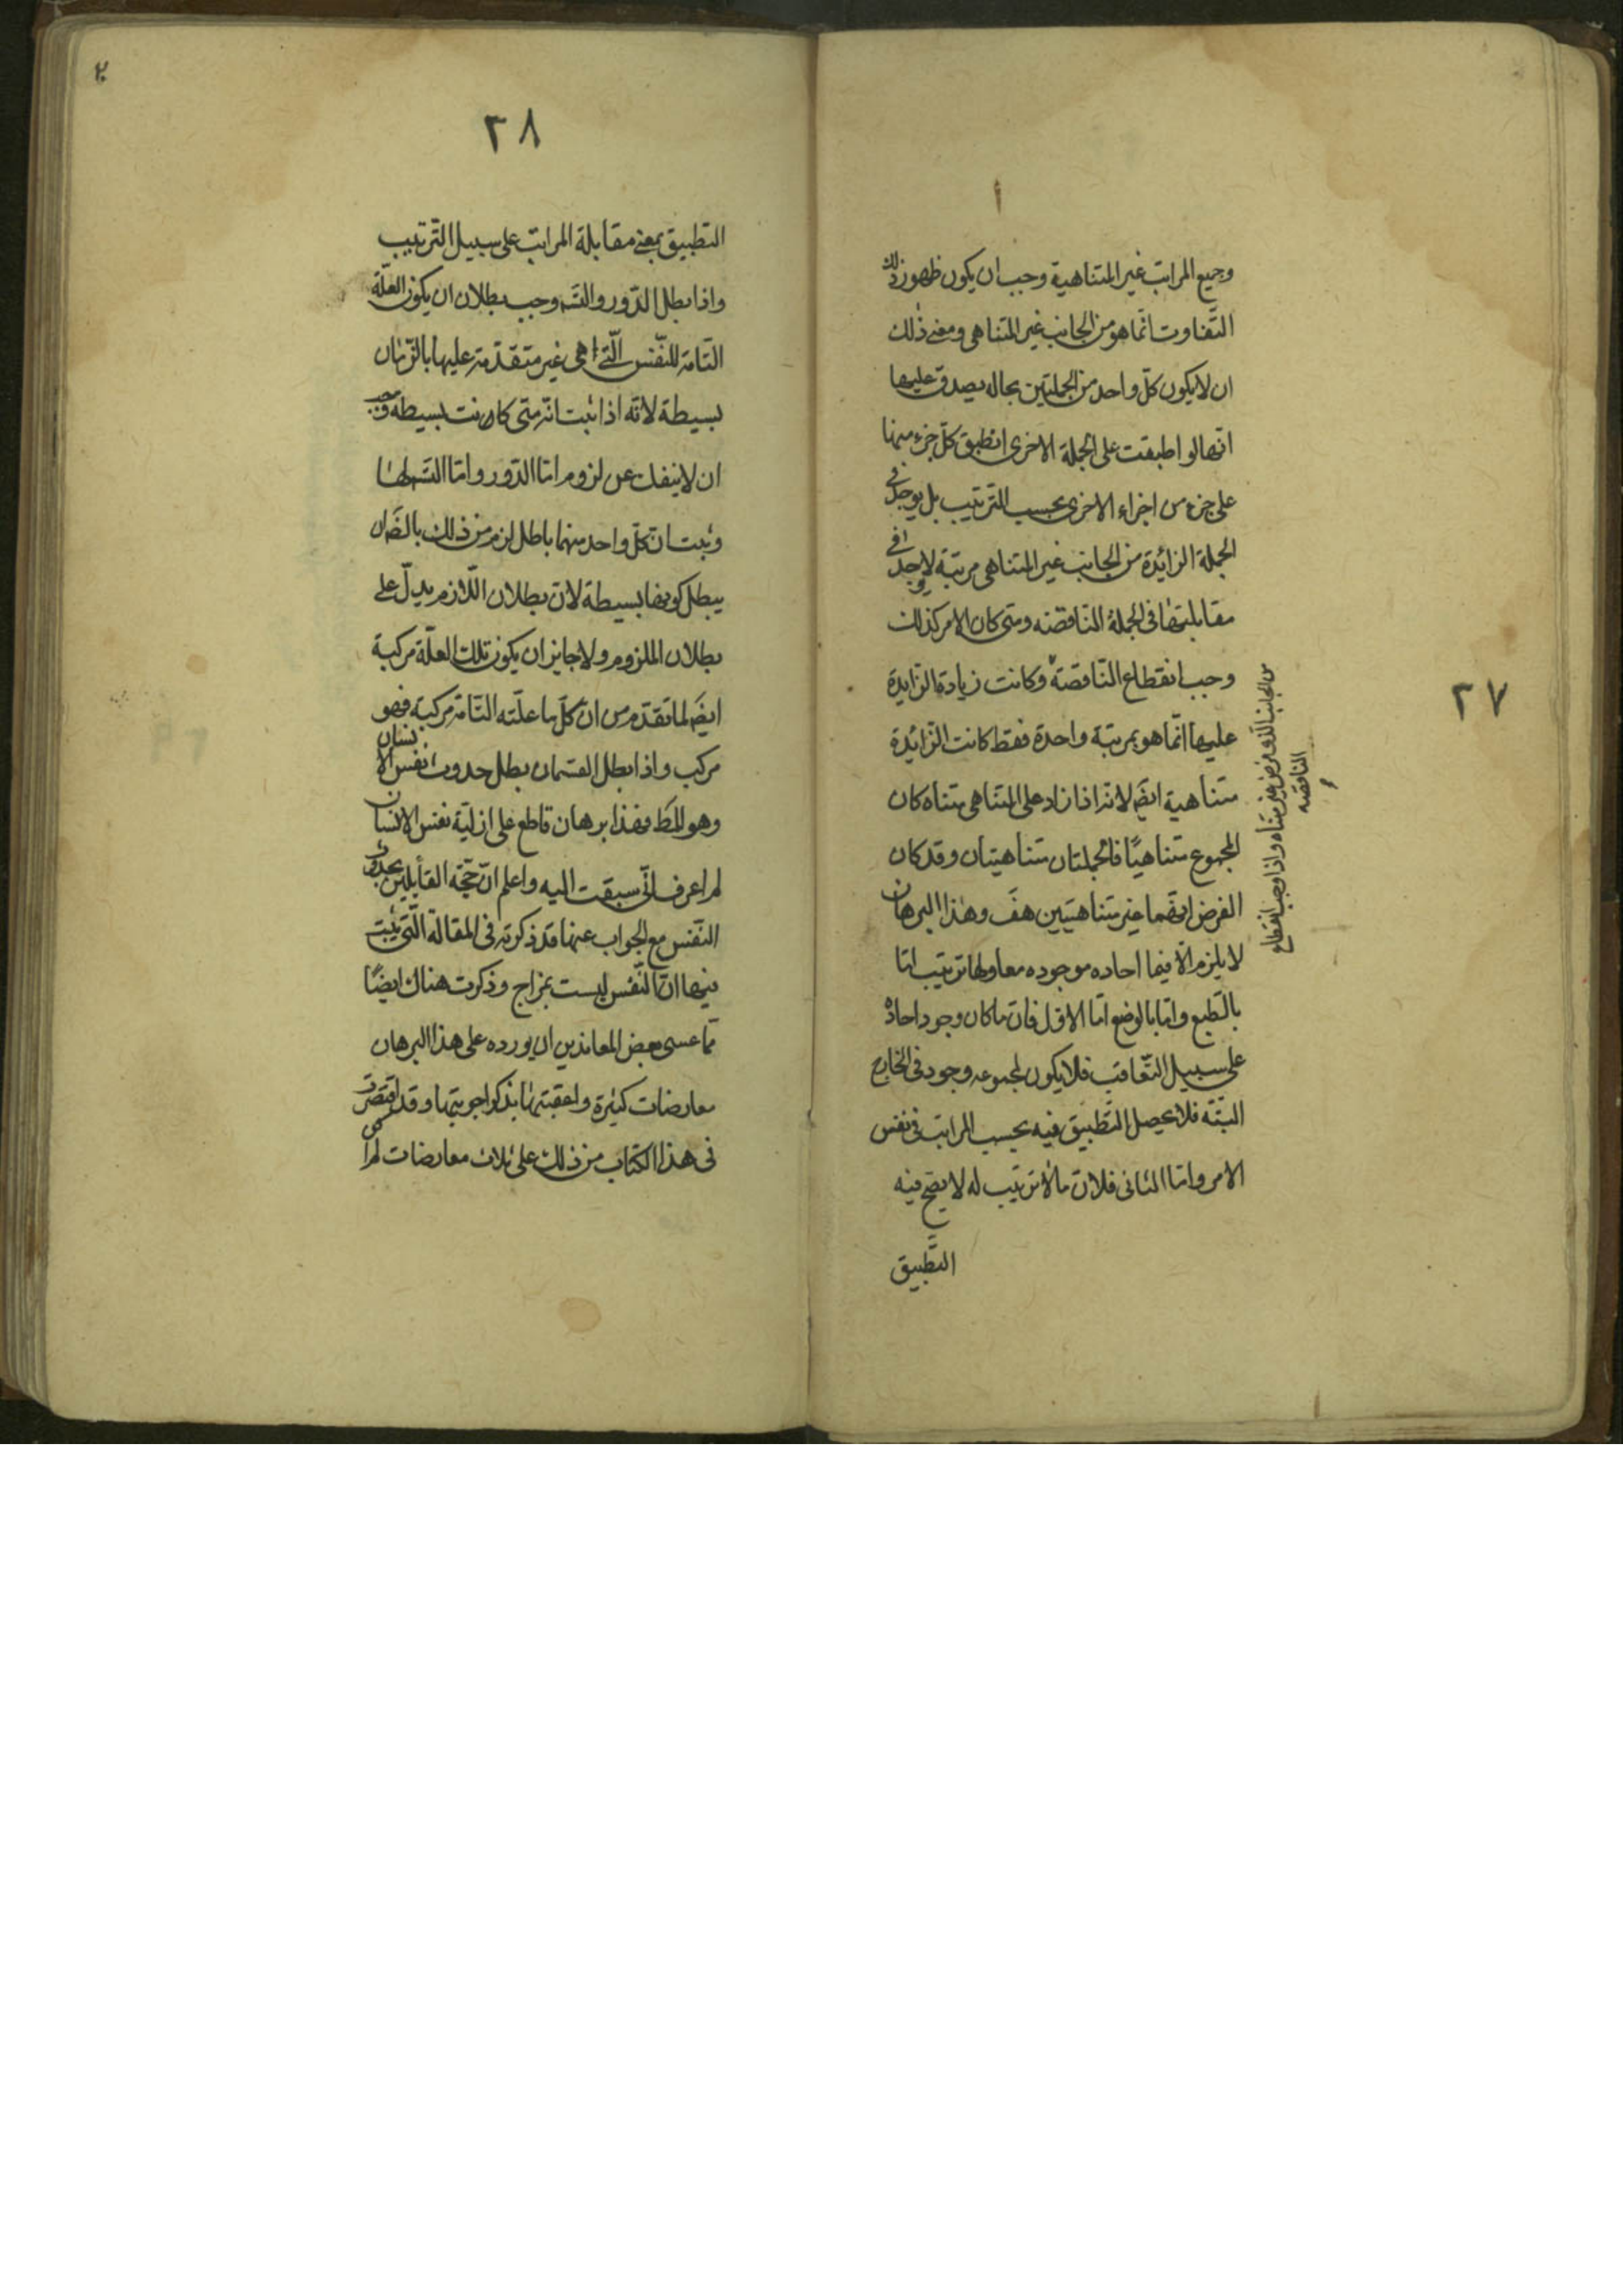 ٢٧
وجميع المراتب غير المتناهية وجب ان يكون ظهور ذلك
التفاوت انّما هو من الجانب غير المتناهى ومعنى ذلك
ان لا يكون كلّ واحد من الجملتين بحاله يصدق عليها
انّها لو اطبقت على الجملة الاخرى انطبق كلّ جزء منها
على جزء من اجزاء الاخرى بحسب الترتيب بل يوجد فى
الجملة الزائدة من الجانب غير المتناهى مرتبة لا يوجد
مقابلتها فى الجملة الناقصه ومتى كان الامر كذلك
وجب انقطاع النّاقصة وكانت زيادة الزايدة
عليها انّما هو بمرتبة واحدة فقط كانت الزّائدة
متناهية ايضَ لانّه اذا زاد على المتناهى متناه كان
المجموع متناهيًا فالجملتان متناهيتان وقد كان
الفرض انهما غير متناهيتين هفَ وهذا البرهان
لا يلزم الّا فيما احاده موجوده معا ولها ترتيب امّا
بالطّبع وامّا بالوضع امّا الاوّل فانّ ما كان وجود احاده
على سبيل التّعاقب فلا يكون لمجموعه وجود فى الخارج
البتّة فلا يحصل التّطبيق فيه بحسب المراتب فى نفس
الامر وامّا الثانى فلانّ ما لا ترتيب له لا يصح فيه
التّطبيق
من الجانب الذى فرض غير متناه واذا وجب انقطاع
الناقصه
٢٨
التطبيق بمعنى مقابلة المراتب على سبيل التّرتيب
واذا بطل الدّور والتسَ وجب بطلان ان يكون العلّة
التّامة للنّفس الّتى هى غير متقدّمة عليها بالزّمان
بسيطة لانّه اذا ثبت انّه متى كانت بسيطة وجب
ان لا ينفك عن لزوم امّا الدّور وامّا التسَ لها
وثبت ان كلّ واحد منهما باطل لزم من ذلك بالضَ ان
يبطل كونها بسيطة لانّ بطلان اللّازم يدلّ على
بطلان الملزوم ولا جايز ان يكون تلك العلّة مركبة
ايضَ لما تقدّم من انّ كلّ ما علّته التّامة مركبة فهو
مركب واذا بطل القسمان بطل حدوث نفس الانسان
وهو المطَ فهذا برهان قاطع على ازليّة نفس الانسان
لم اعرف انّى سبقت اليه واعلم انّ حجّة القائلين بحدوث
النّفس مع الجواب عنها قد ذكرته فى المقالة الّتى ثبت
فيها انّ النّفس ليست بمزاج وذكرت هناك ايضًا
ممّا عسى بعض المعاندين ان يورده على هذا البرهان
معارضات كثيرة واعقبتها بذكر اجوبتها وقد اقتصرت
فى هذا الكتاب من ذلك على ثلاث معارضات لم ار